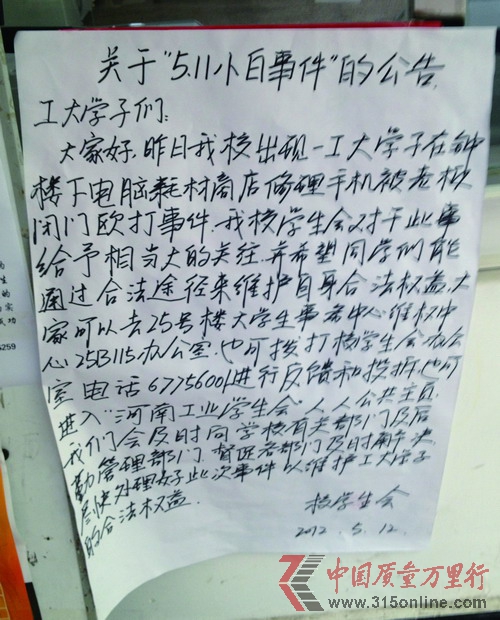 关于“5.11小白事件”的公告
工大学子们:
大家好,昨日我校出现一工大学子在钟
楼下电脑耗材商店修理手机被老板
闭门欧打事件.我校学生会对于此事
给予相当大的关注.并希望同学们能
通过合法途径来维护自身合法权益.大
家可以去25号楼大学生事务中心维权中
心25B115办公室.也可拨打校学生会办公
室电话67756001进行反馈和投诉.也可
进入“河南工业学生会”人人公共主页.
我们会及时同学校有关部门及后
勤管理部门 督促各部门及时解决
尽快处理好此次事件以维护工大学子
的合法权益.
校学生会
2012. 5. 12.
6259
中国质量万里行
www.315online.com